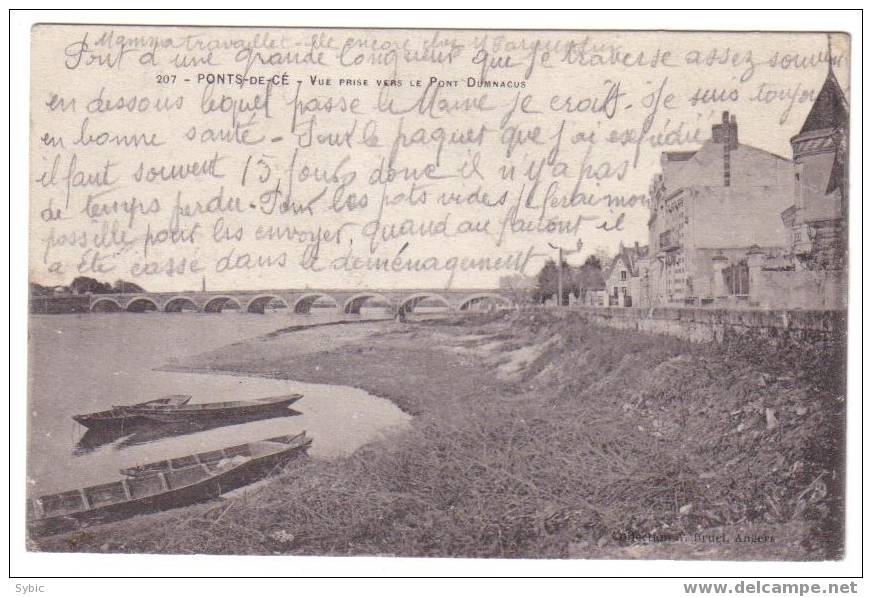 Mamma travaille - elle encore chez M Parguentin
Pont d'une grande longueur que je traverse assez souvent
207 - PONTS-DE-CÉ - VUE PRISE VERS LE PONT DUMNACUS
en dessous lequel passe le Maine je crois. Je suis toujours
en bonne santé - Pour le paquet que j'ai expédié
il faut souvent 15 jours donc il n'y a pas
de temps perdu - Pour les pots vides je ferai mon
possible pour les envoyer, quand au faitout il
a été cassé dans le déménagement
Collection F. Bruel, Angers
Sybic
http://www.delcampe.net